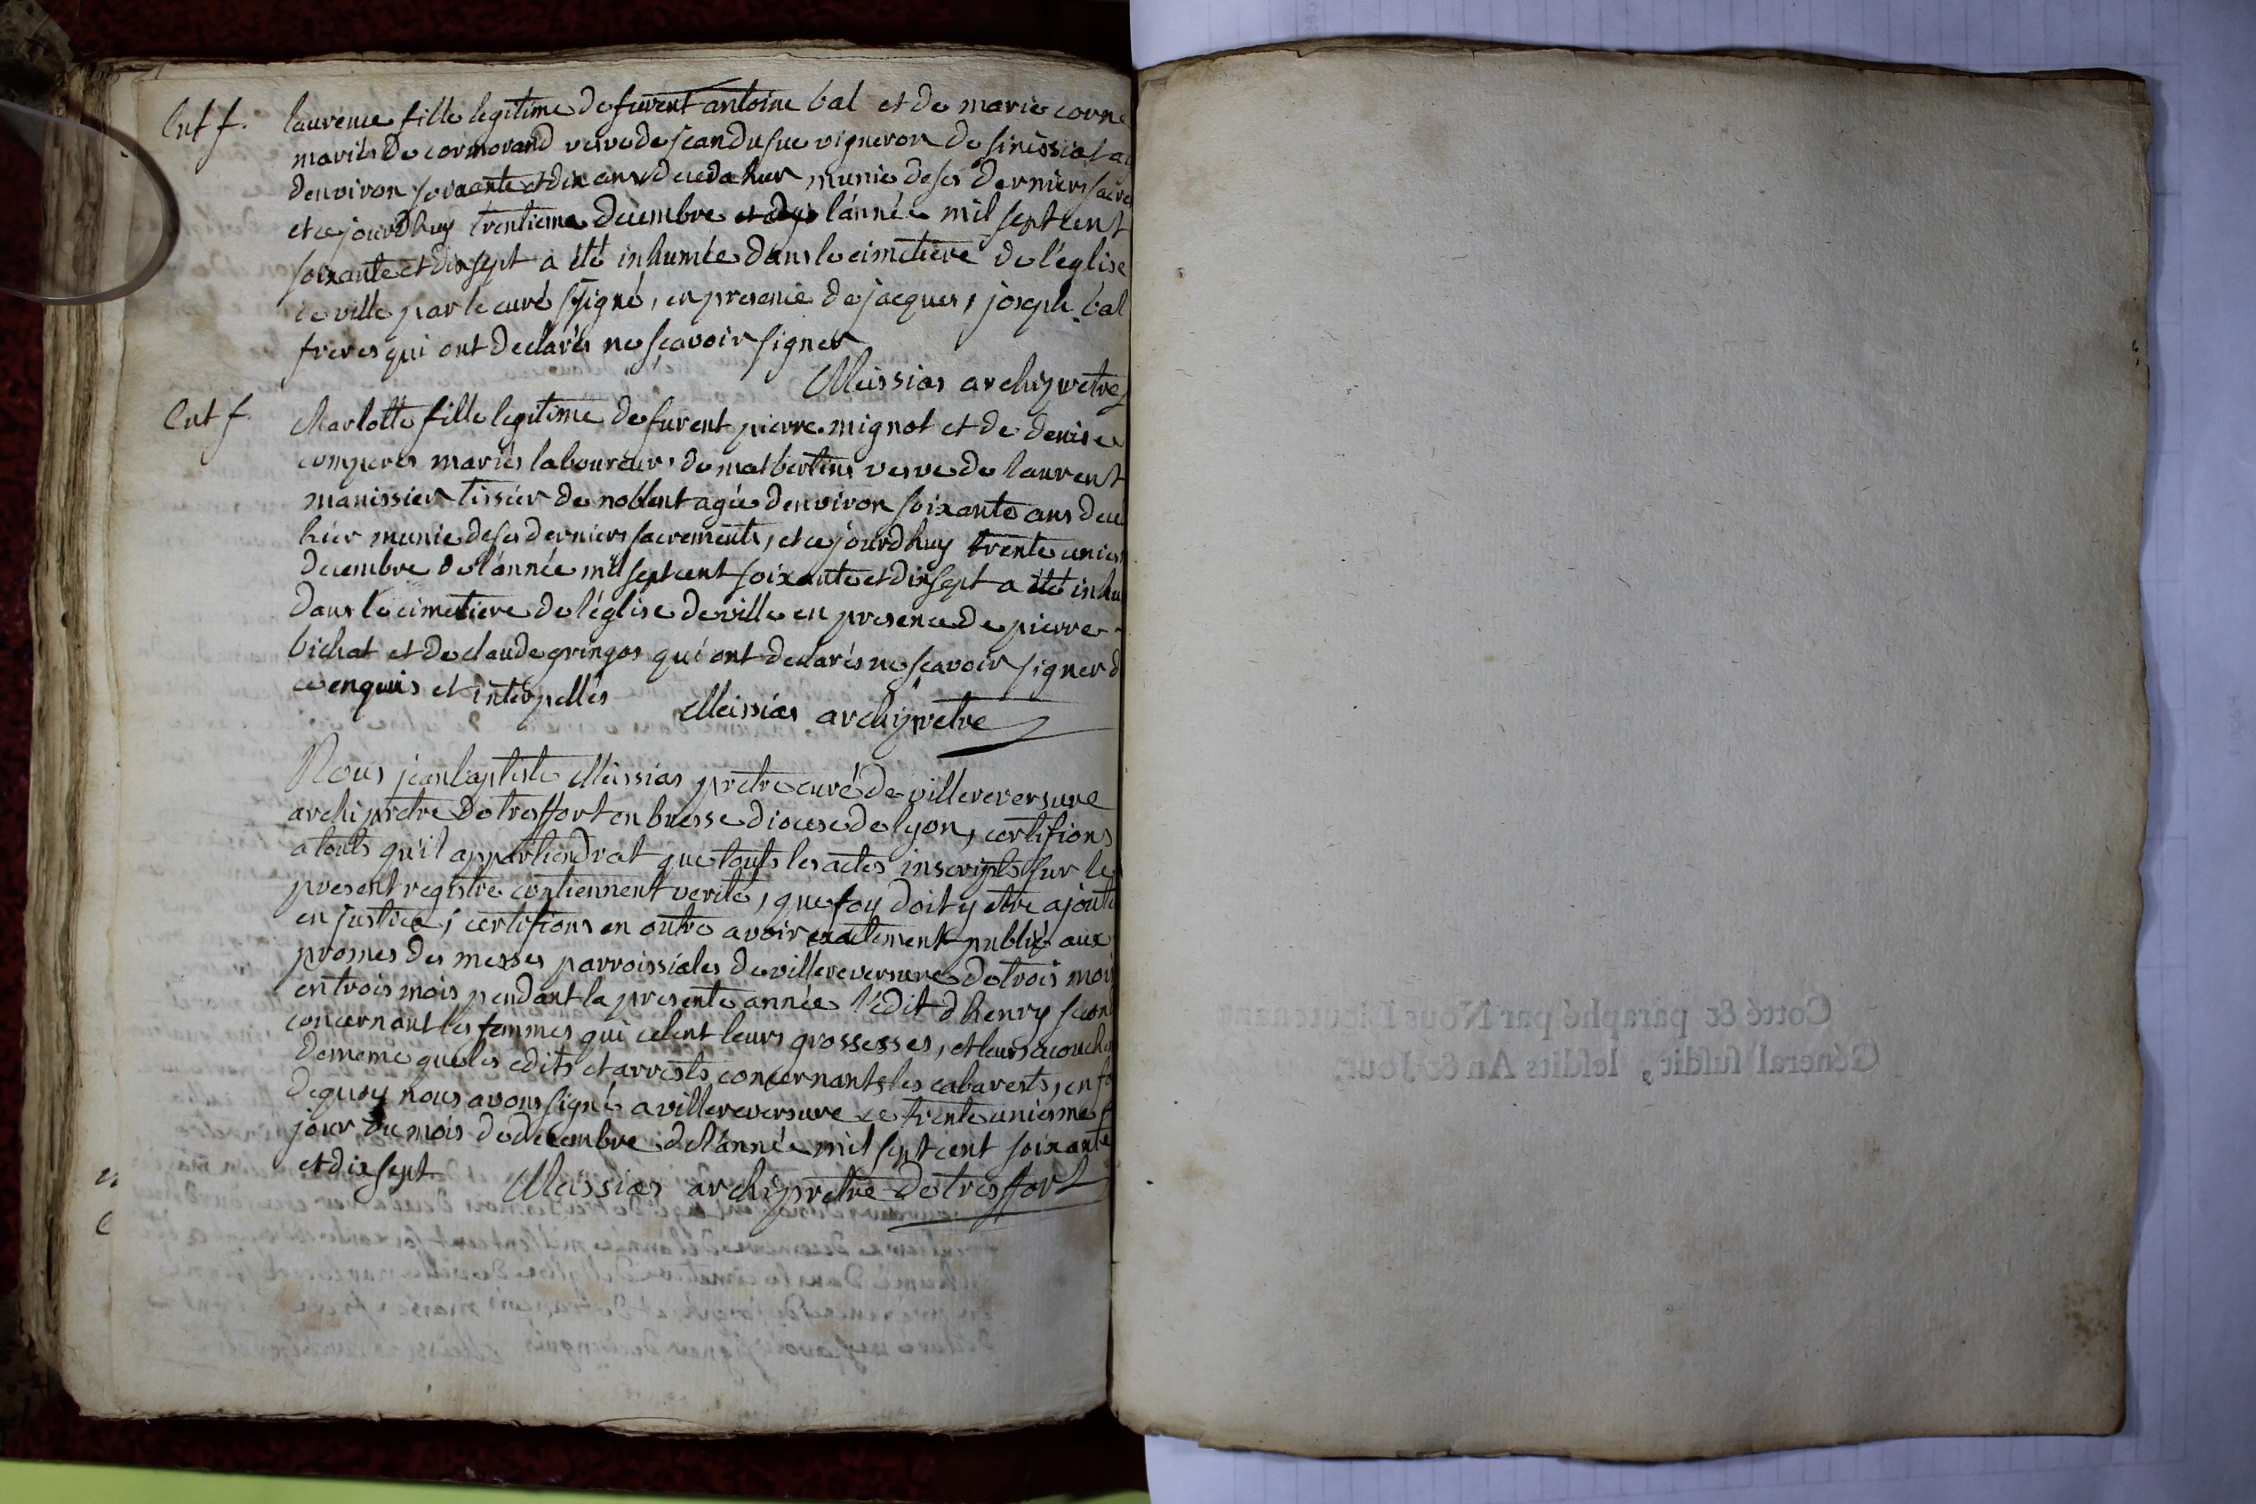 Ent f. laurence fille legitime de furent antoine bal et de marie corne
mariés de cormorand vesve de jean dufue vigneron de
denviron soixante et dix ans decedahier munie deses derniers sacre
et cejourdhuy trentieme decembre et de lánnée mil sept cent
soixante et dixsept a été inhumée dans le cimetiere de l'église
de ville par le curé ssigné, en presence de jacques, joseph bal
freres qui ont declarés ne sçavoir signer
Meissias archiprètre
Ent f. Charlotte fille legitime de furent pierre mignot et de denise
comperes mariés laboureurs de mas bertins vesve de laurent
manissier tissier de noblent agée denviron soixante ans dece
hier munie deses derniers sacrements, et cejourdhuy trente uniem
decembre de lánnée mil sept cent soixante et dixsept a été inhu
dans le cimetiere de léglise de ville en presence de pierre
bichat et de claude gringos qui ont declarés ne sçavoir signer d
ce enquis et interpellés Meissias archiprètre
Nous jean baptiste Meissias pretre curé de villereversure
archipretre de tresffort en bresse diocese de lyon, certifions
a touts qu'il appartiendrat que touts les actes inscripts sur le
present registre contiennent verité, que foy doit y etre ajouté
en justice, certifions en outre avoir exactement publié aux
prosnes des messes parroissiales de villereversure de trois mois
en trois mois pendant la presente année l'édit d'henry secon
concernant les femmes qui celent leurs grossesses, et leurs acouche
dememe que les edits et arrests concernants les cabarests, en fo
dequoy nous avons signé a villereversure ce trente uniesme
jour du mois de decembre de lánnée mil sept cent soixante
et dix sept Meissias archiprètre de tresffort
Cotté & paraphé par Nous Lieutenant
Général susdit, lesdits An & Jour,